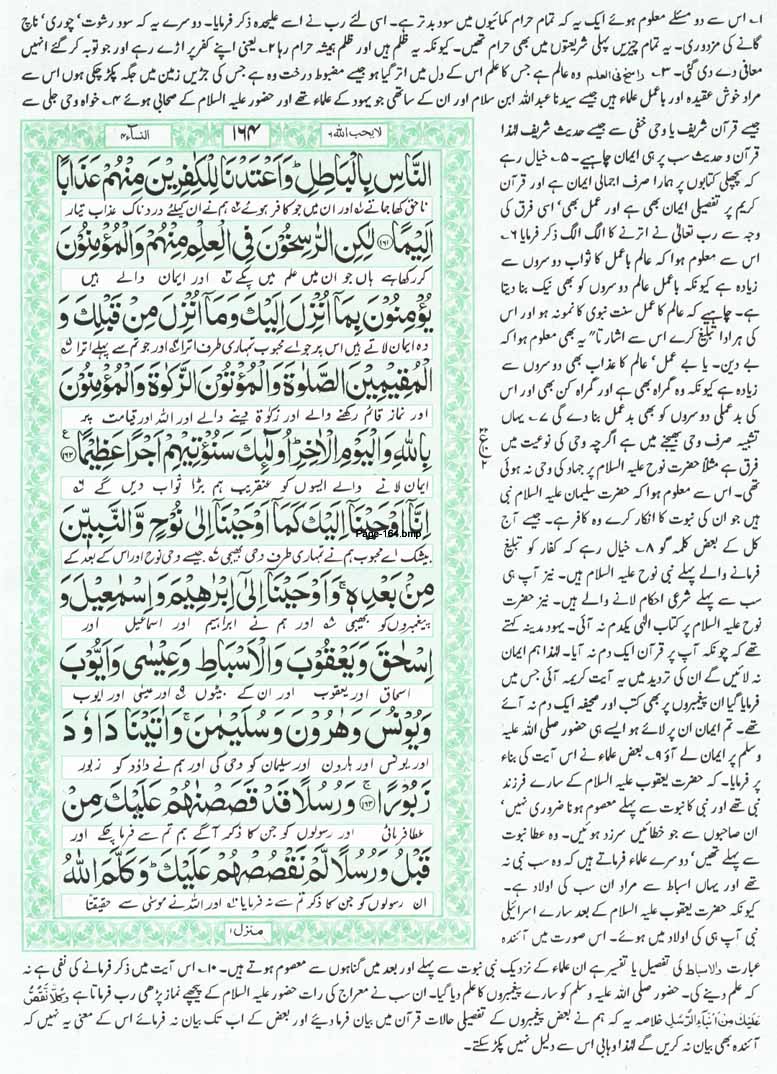 ۱؎ اس سے دو مسئلے معلوم ہوئے ایک یہ کہ تمام حرام کمائیوں میں سود بدتر ہے۔ اسی لئے رب نے اسے علیحدہ ذکر فرمایا۔ دوسرے یہ کہ سود رشوت، چوری، ناچ
گانے کی مزدوری۔ یہ تمام چیزیں پہلی شریعتوں میں بھی حرام تھیں۔ کیونکہ یہ ظلم ہیں اور ظلم ہمیشہ حرام رہا ۲؎ یعنی اپنے کفر پر اڑے رہے اور جو توبہ کر گئے انہیں
معافی دے دی گئی۔ ۳؎ راسخ فی العلم وہ عالم ہے جس کا علم اس کے دل میں اتر گیا ہو جیسے مضبوط درخت وہ ہے جس کی جڑیں زمین میں جگہ پکڑ چکی ہوں اس سے
مراد خوش عقیدہ اور باعمل علماء ہیں جیسے سیدنا عبداللہ ابن سلام اور ان کے ساتھی جو یہود کے علماء تھے اور حضور علیہ السلام کے صحابی ہوئے ۴؎ خواہ وحی جلی سے
لا یحب اللہ ۶
۱۶۴
النسآء ۴
النَّاسِ بِالْبَاطِلِ ؕ وَاَعْتَدْنَا لِلْكٰفِرِیْنَ مِنْهُمْ عَذَابًا
ناحق کھا جاتے اور ان میں جو کافر ہوئے ہم نے ان کیلئے دردناک عذاب تیار
اَلِیْمًا ﴿۱۶۱﴾ لٰكِنِ الرّٰسِخُوْنَ فِی الْعِلْمِ مِنْهُمْ وَالْمُؤْمِنُوْنَ
کر رکھا ہے ہاں جو ان میں علم میں پکے اور ایمان والے ہیں
یُؤْمِنُوْنَ بِمَاۤ اُنْزِلَ اِلَیْكَ وَمَاۤ اُنْزِلَ مِنْ قَبْلِكَ وَ
وہ ایمان لاتے ہیں اس پر جو اے محبوب تمہاری طرف اترا اور جو تم سے پہلے اترا
الْمُقِیْمِیْنَ الصَّلٰوةَ وَالْمُؤْتُوْنَ الزَّكٰوةَ وَالْمُؤْمِنُوْنَ
اور نماز قائم رکھنے والے اور زکوٰة دینے والے اور اللہ اور قیامت پر
بِاللّٰهِ وَالْیَوْمِ الْاٰخِرِ ؕ اُولٰٓئِكَ سَنُؤْتِیْهِمْ اَجْرًا عَظِیْمًا ﴿۱۶۲﴾
ایمان لانے والے ایسوں کو عنقریب ہم بڑا ثواب دیں گے
اِنَّاۤ اَوْحَیْنَاۤ اِلَیْكَ كَمَاۤ اَوْحَیْنَاۤ اِلٰی نُوْحٍ وَّالنَّبِیّٖنَ
Page-164.bmp
بیشک اے محبوب ہم نے تمہاری طرف وحی بھیجی جیسے وحی نوح اور اس کے بعد کے
مِنْۢ بَعْدِهٖ ۚ وَاَوْحَیْنَاۤ اِلٰۤی اِبْرٰهِیْمَ وَاِسْمٰعِیْلَ وَ
پیغمبروں کو بھیجی اور ہم نے ابراہیم اور اسماعیل اور
اِسْحٰقَ وَیَعْقُوْبَ وَالْاَسْبَاطِ وَعِیْسٰی وَاَیُّوْبَ
اسحاق اور یعقوب اور ان کے بیٹوں اور عیسٰی اور ایوب
وَیُوْنُسَ وَهٰرُوْنَ وَسُلَیْمٰنَ ۚ وَاٰتَیْنَا دَاوٗدَ
اور یونس اور ہارون اور سلیمان کو وحی کی اور ہم نے داؤد کو زبور
زَبُوْرًا ﴿۱۶۳﴾ ۚ وَرُسُلًا قَدْ قَصَصْنٰهُمْ عَلَیْكَ مِنْ
عطا فرمائی اور رسولوں کو جن کا ذکر آگے ہم تم سے فرما چکے اور
قَبْلُ وَرُسُلًا لَّمْ نَقْصُصْهُمْ عَلَیْكَ ؕ وَكَلَّمَ اللّٰهُ
ان رسولوں کو جن کا ذکر تم سے نہ فرمایا اور اللہ نے موسٰی سے حقیقتًا
منزل ۱
جیسے قرآن شریف یا وحی خفی سے جیسے حدیث شریف لہٰذا
قرآن و حدیث سب پر ہی ایمان چاہیے۔ ۵؎ خیال رہے
کہ پچھلی کتابوں پر ہمارا صرف اجمالی ایمان ہے اور قرآن
کریم پر تفصیلی ایمان بھی ہے اور عمل بھی، اسی فرق کی
وجہ سے رب تعالیٰ نے اترنے کا الگ الگ ذکر فرمایا ۶؎
اس سے معلوم ہوا کہ عالم باعمل کا ثواب دوسروں سے
زیادہ ہے کیونکہ باعمل عالم دوسروں کو بھی نیک بنا دیتا
ہے۔ چاہیے کہ عالم کا عمل سنت نبوی کا نمونہ ہو اور اس
کی ہر ادا تبلیغ کرے اس سے اشارتا" یہ بھی معلوم ہوا کہ
بے دین۔ یا بے عمل، عالم کا عذاب بھی دوسروں سے
زیادہ ہے کیونکہ وہ گمراہ بھی ہے اور گمراہ کن بھی اور اس
کی بدعملی دوسروں کو بھی بدعمل بنا دے گی ۷؎ یہاں
تشبیہ صرف وحی بھیجنے میں ہے اگرچہ وحی کی نوعیت میں
فرق ہے مثلاً حضرت نوح علیہ السلام پر جہاد کی وحی نہ ہوئی
تھی۔ اس سے معلوم ہوا کہ حضرت سلیمان علیہ السلام نبی
ہیں جو ان کی نبوت کا انکار کرے وہ کافر ہے۔ جیسے آج
کل کے بعض کلمہ گو ۸؎ خیال رہے کہ کفار کو تبلیغ
فرمانے والے پہلے نبی نوح علیہ السلام ہیں۔ نیز آپ ہی
سب سے پہلے شرعی احکام لانے والے ہیں۔ نیز حضرت
نوح علیہ السلام پر کتاب الٰہی یکدم نہ آئی۔ یہود مدینہ کہتے
تھے کہ چونکہ آپ پر قرآن ایک دم نہ آیا۔ لہٰذا ہم ایمان
نہ لائیں گے ان کی تردید میں یہ آیت کریمہ آئی جس میں
فرمایا گیا ان پیغمبروں پر بھی کتب اور صحیفہ ایک دم نہ آئے
تھے۔ تم ایمان ان پر لائے ہو ایسے ہی حضور صلی اللہ علیہ
وسلم پر ایمان لے آؤ ۹؎ بعض علماء نے اس آیت کی بناء
پر فرمایا۔ کہ حضرت یعقوب علیہ السلام کے سارے فرزند
نبی تھے اور نبی کا نبوت سے پہلے معصوم ہونا ضروری نہیں،
ان صاحبوں سے جو خطائیں سرزد ہوئیں۔ وہ عطا نبوت
سے پہلے تھیں، دوسرے علماء فرماتے ہیں کہ وہ سب نبی نہ
تھے اور یہاں اسباط سے مراد ان سب کی اولاد ہے۔
کیونکہ حضرت یعقوب علیہ السلام کے بعد سارے اسرائیلی
نبی آپ ہی کی اولاد میں ہوئے۔ اس صورت میں آئندہ
عبارت والاسباط کی تفصیل یا تفسیر ہے ان علماء کے نزدیک نبی نبوت سے پہلے اور بعد میں گناہوں سے معصوم ہوتے ہیں۔ ۱۰؎ اس آیت میں ذکر فرمانے کی نفی ہے نہ
کہ علم دینے کی۔ حضور صلی اللہ علیہ وسلم کو سارے پیغمبروں کا علم دیا گیا۔ ان سب نے معراج کی رات حضور علیہ السلام کے پیچھے نماز پڑھی رب فرماتا ہے وَكُلًّا نَّقُصُّ
عَلَیْكَ مِنْ اَنْۢبَآءِ الرُّسُلِ خلاصہ یہ کہ ہم نے بعض پیغمبروں کے تفصیلی حالات قرآن میں بیان فرما دیئے اور بعض کے اب تک بیان نہ فرمائے اس کے معنی یہ نہیں کہ
آئندہ بھی بیان نہ کریں گے لہٰذا وہابی اس سے دلیل نہیں پکڑ سکتے۔